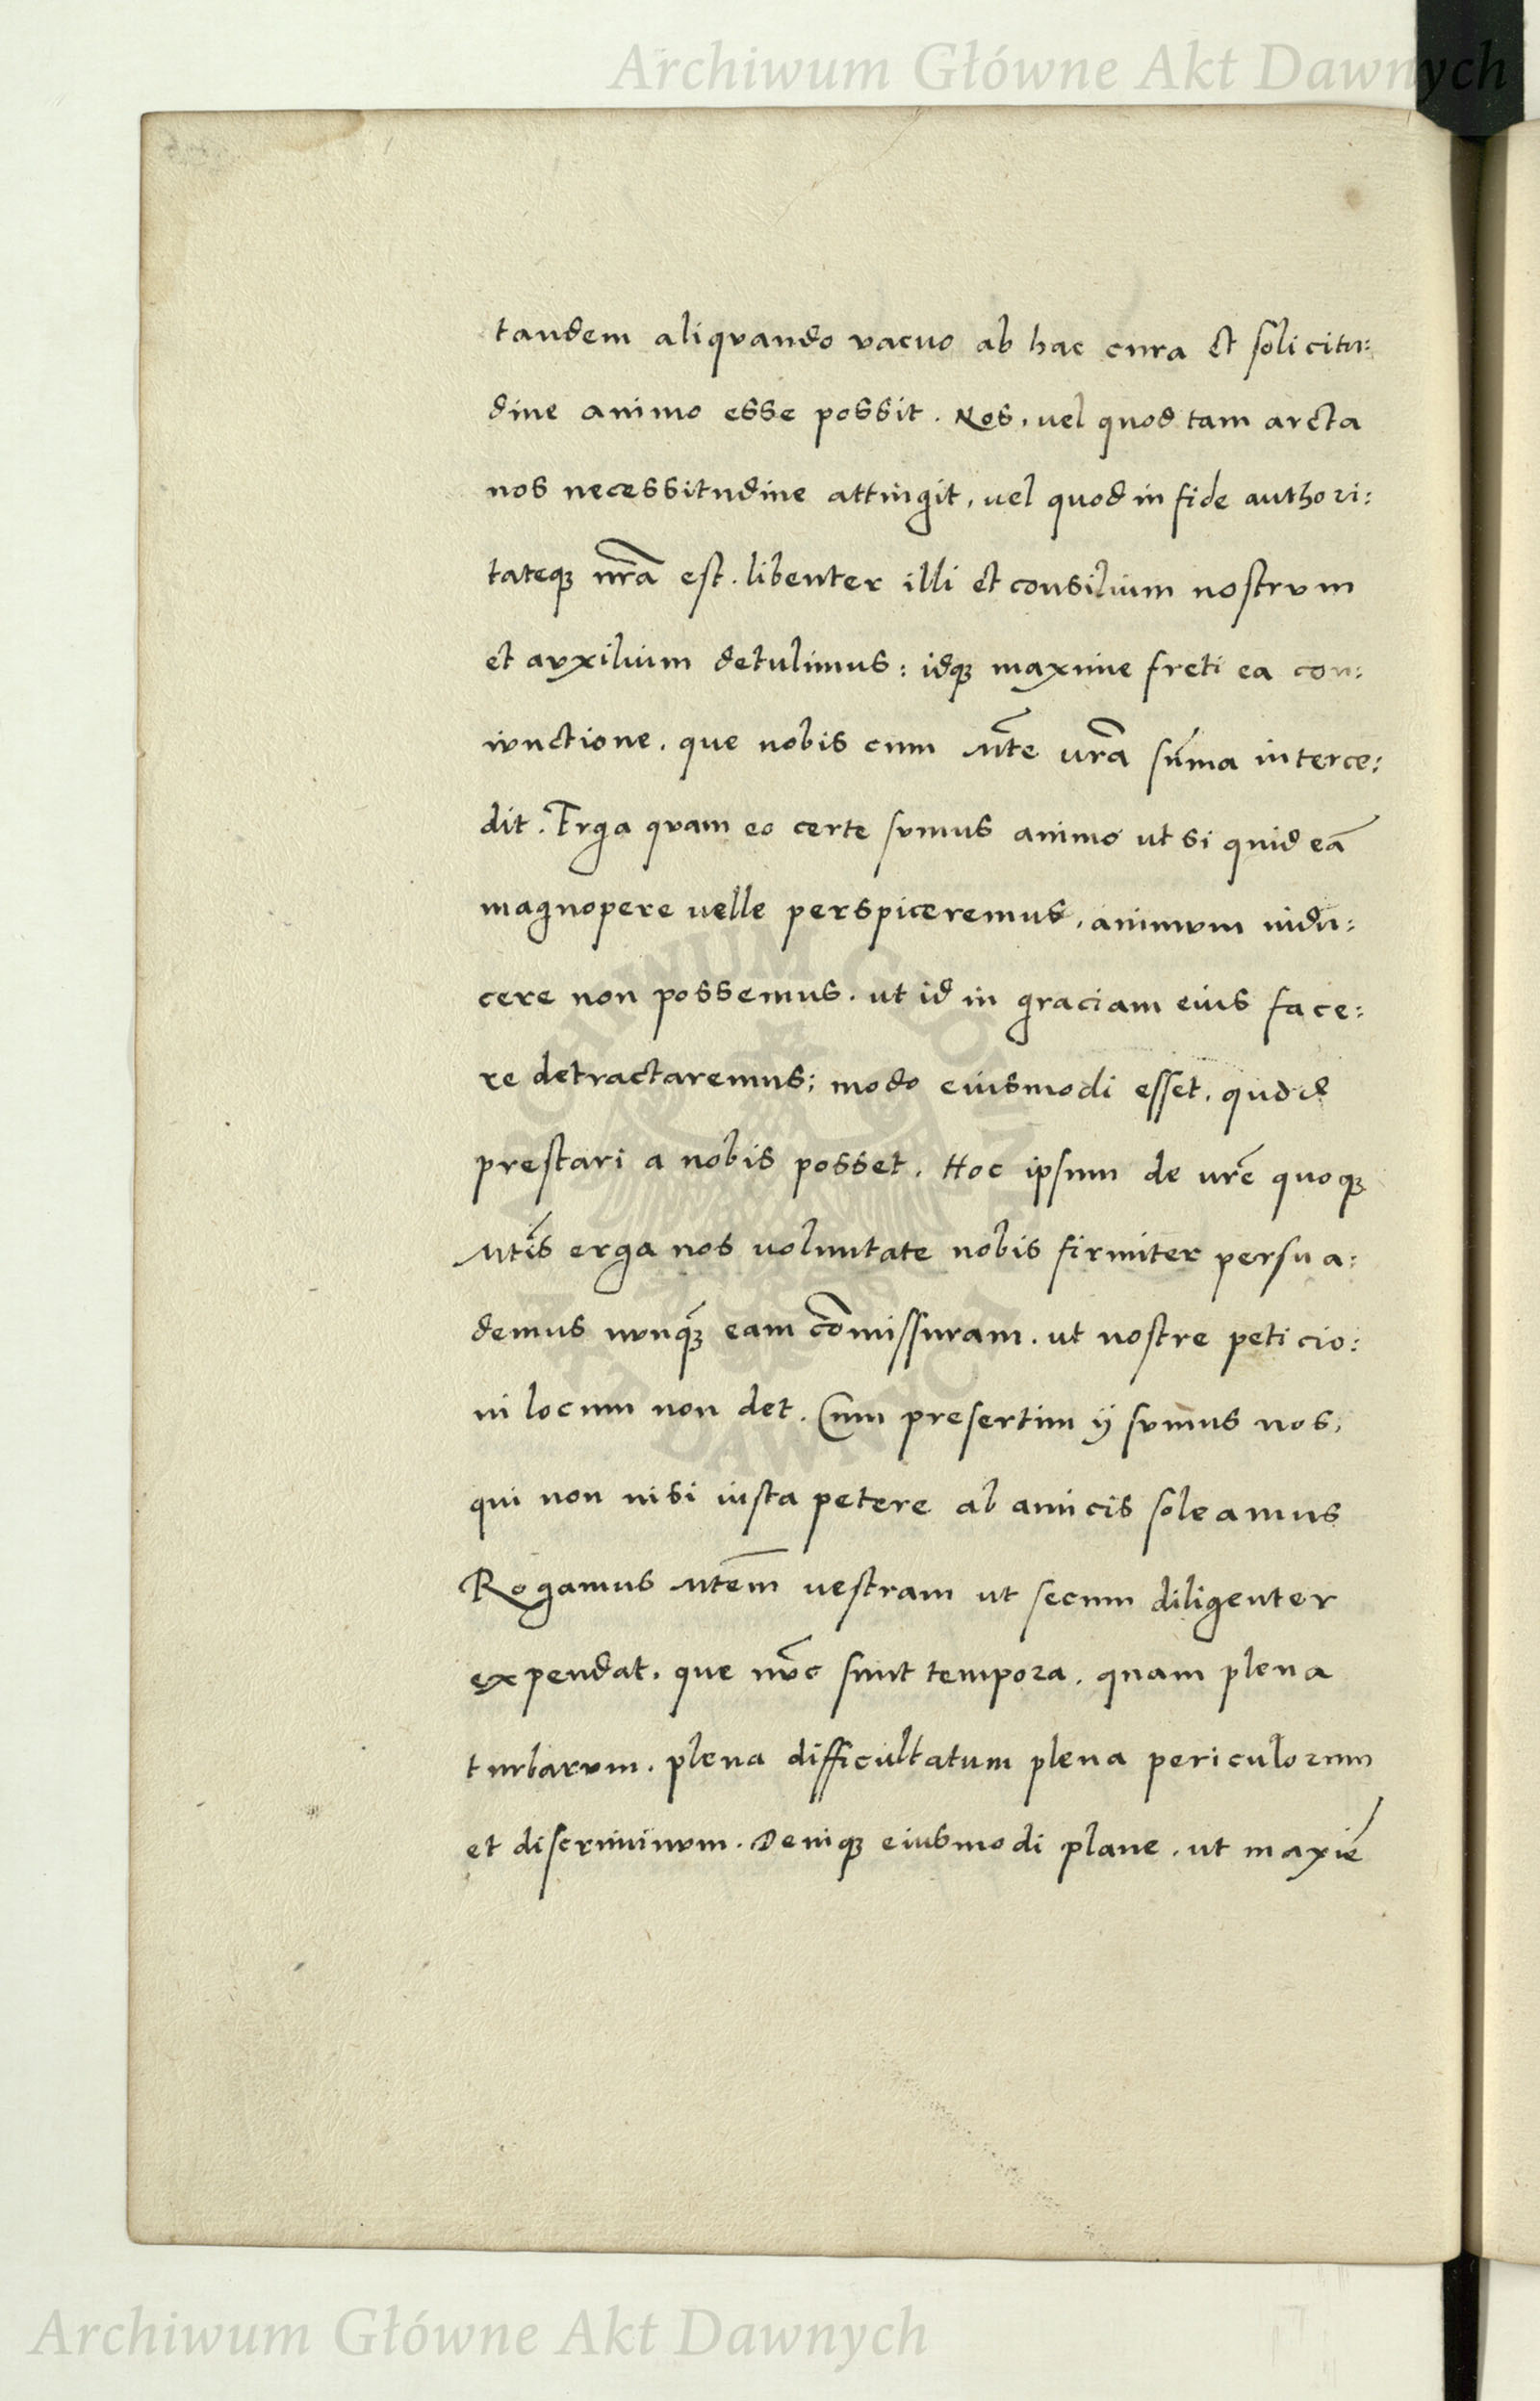 Archiwum Główne Akt Dawnych
tandem aliquando vacuo ab hac cura et solicitu:
dine animo esse possit. Nos, vel quod tam arcta
nos necessitudine attingit, vel quod in fide authori:
tateqꝫ nr̃a est. libenter illi et consilium nostrvm
et avxilium detulimus: idqꝫ maxime freti ea con:
ivnctione. que nobis cum Mt̃e vr̃a sum̃a interce:
dit. Erga qvam eo certe svmus animo ut si quid eã
magnopere velle perspiceremus, animvm indu:
cere non possemus. ut id in graciam eius face:
re detractaremus; modo eiusmodi esset, quod
prestari a nobis posset. Hoc ipsum de vrẽ quoqꝫ
Mtĩs erga nos voluntate nobis firmiter persua:
demus nvnq̃ꝫ eam cõmissuram. ut nostre peticio:
ni locum non det. Cum presertim ij svmus nos,
qui non nisi iusta petere ab amicis soleamus
Rogamus Mtẽm vestram ut secum diligenter
expendat. que nṽc sunt tempora, quam plena
turbarvm. plena difficultatum plena periculorum
et discriminvm. Deniqꝫ eiusmodi plane, ut maxiẽ
ARCHIWUM GŁÓWNE
AKT DAWNYCH
Archiwum Główne Akt Dawnych